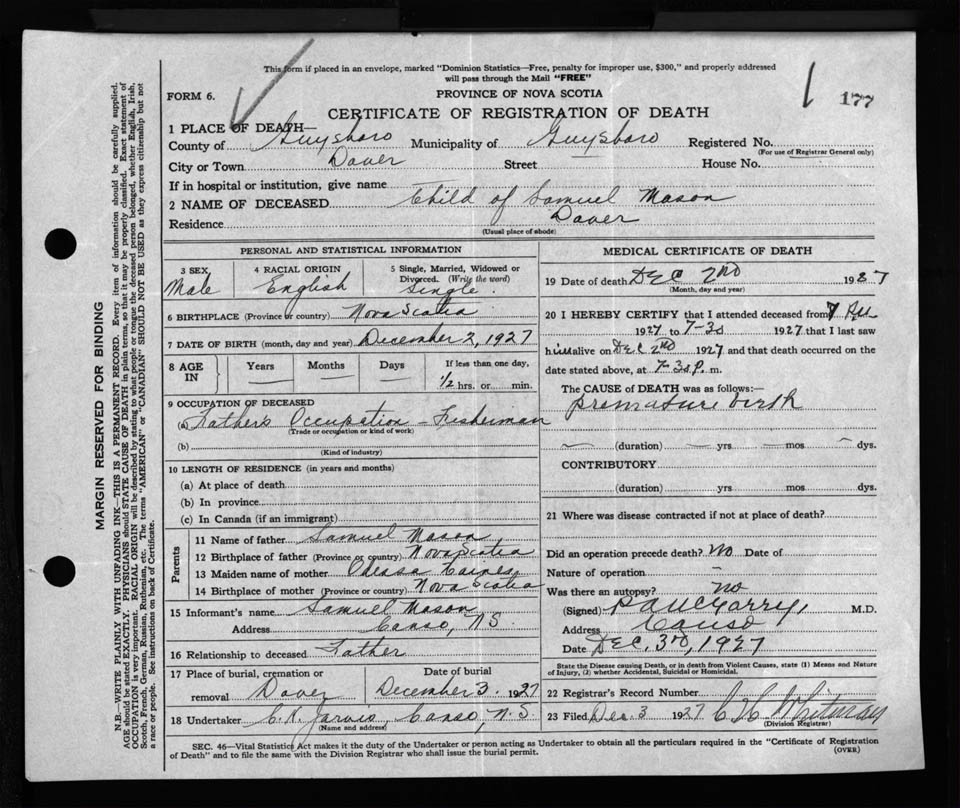 This form if placed in an envelope, marked "Dominion Statistics—Free, penalty for improper use, $300," and properly addressed
will pass through the Mail "FREE"
FORM 6.
PROVINCE OF NOVA SCOTIA
177
CERTIFICATE OF REGISTRATION OF DEATH
1 PLACE OF DEATH—
County of Guysboro Municipality of Guysboro Registered No.
(For use of Registrar General only)
City or Town Dover Street House No.
If in hospital or institution, give name
2 NAME OF DECEASED Child of Samuel Mason
Residence Dover
(Usual place of abode)
PERSONAL AND STATISTICAL INFORMATION
3 SEX 4 RACIAL ORIGIN 5 Single, Married, Widowed or
Divorced. (Write the word)
Male English Single
6 BIRTHPLACE (Province or country) Nova Scotia
7 DATE OF BIRTH (month, day and year) December 2, 1927
8 AGE IN Years Months Days If less than one day,
1/2 hrs. or min.
9 OCCUPATION OF DECEASED
(a) Father's Occupation - Fisherman
(Trade or occupation or kind of work)
(b)
(Kind of industry)
10 LENGTH OF RESIDENCE (in years and months)
(a) At place of death
(b) In province
(c) In Canada (if an immigrant)
Parents
11 Name of father Samuel Mason
12 Birthplace of father (Province or country) Nova Scotia
13 Maiden name of mother Odessa
14 Birthplace of mother (Province or country) Nova Scotia
15 Informant's name Samuel Mason
Address Canso, N.S.
16 Relationship to deceased Father
17 Place of burial, cremation or removal Dover
Date of burial December 3 1927
18 Undertaker C. N. Jarvis, Canso, N.S.
(Name and address)
MEDICAL CERTIFICATE OF DEATH
19 Date of death Dec 2nd 1927
(Month, day and year)
20 I HEREBY CERTIFY that I attended deceased from 7 P.M.
1927 to 7-30 1927 that I last saw
him alive on Dec 2nd 1927 and that death occurred on the
date stated above, at 7-30 P. m.
The CAUSE of DEATH was as follows:—
premature birth
(duration) yrs mos dys.
CONTRIBUTORY
(duration) yrs. mos. dys.
21 Where was disease contracted if not at place of death?
Did an operation precede death? No Date of
Nature of operation
Was there an autopsy? no
(Signed) M.D.
Address Canso
Date Dec. 3rd, 1927
State the Disease causing Death, or in death from Violent Causes, state (1) Means and Nature
of Injury, (2) whether Accidental, Suicidal or Homicidal.
22 Registrar's Record Number
23 Filed Dec. 3 1927 C H Whitman
(Division Registrar)
SEC. 46—Vital Statistics Act makes it the duty of the Undertaker or person acting as Undertaker to obtain all the particulars required in the "Certificate of Registration
of Death" and to file the same with the Division Registrar who shall issue the burial permit.
(OVER)
MARGIN RESERVED FOR BINDING
N.B.—WRITE PLAINLY WITH UNFADING INK—THIS IS A PERMANENT RECORD. Every item of information should be carefully supplied.
AGE should be stated EXACTLY. PHYSICIANS should STATE CAUSE OF DEATH in plain terms, so that it may be properly classified. Exact statement of
OCCUPATION is very important. RACIAL ORIGIN will be described by stating to what people or tongue the deceased person belonged, whether English, Irish,
Scotch, French, German, Russian, Ruthenian, etc. The terms "AMERICAN" or "CANADIAN" SHOULD NOT BE USED as they express citizenship but not
a race or people. See instructions on back of Certificate.